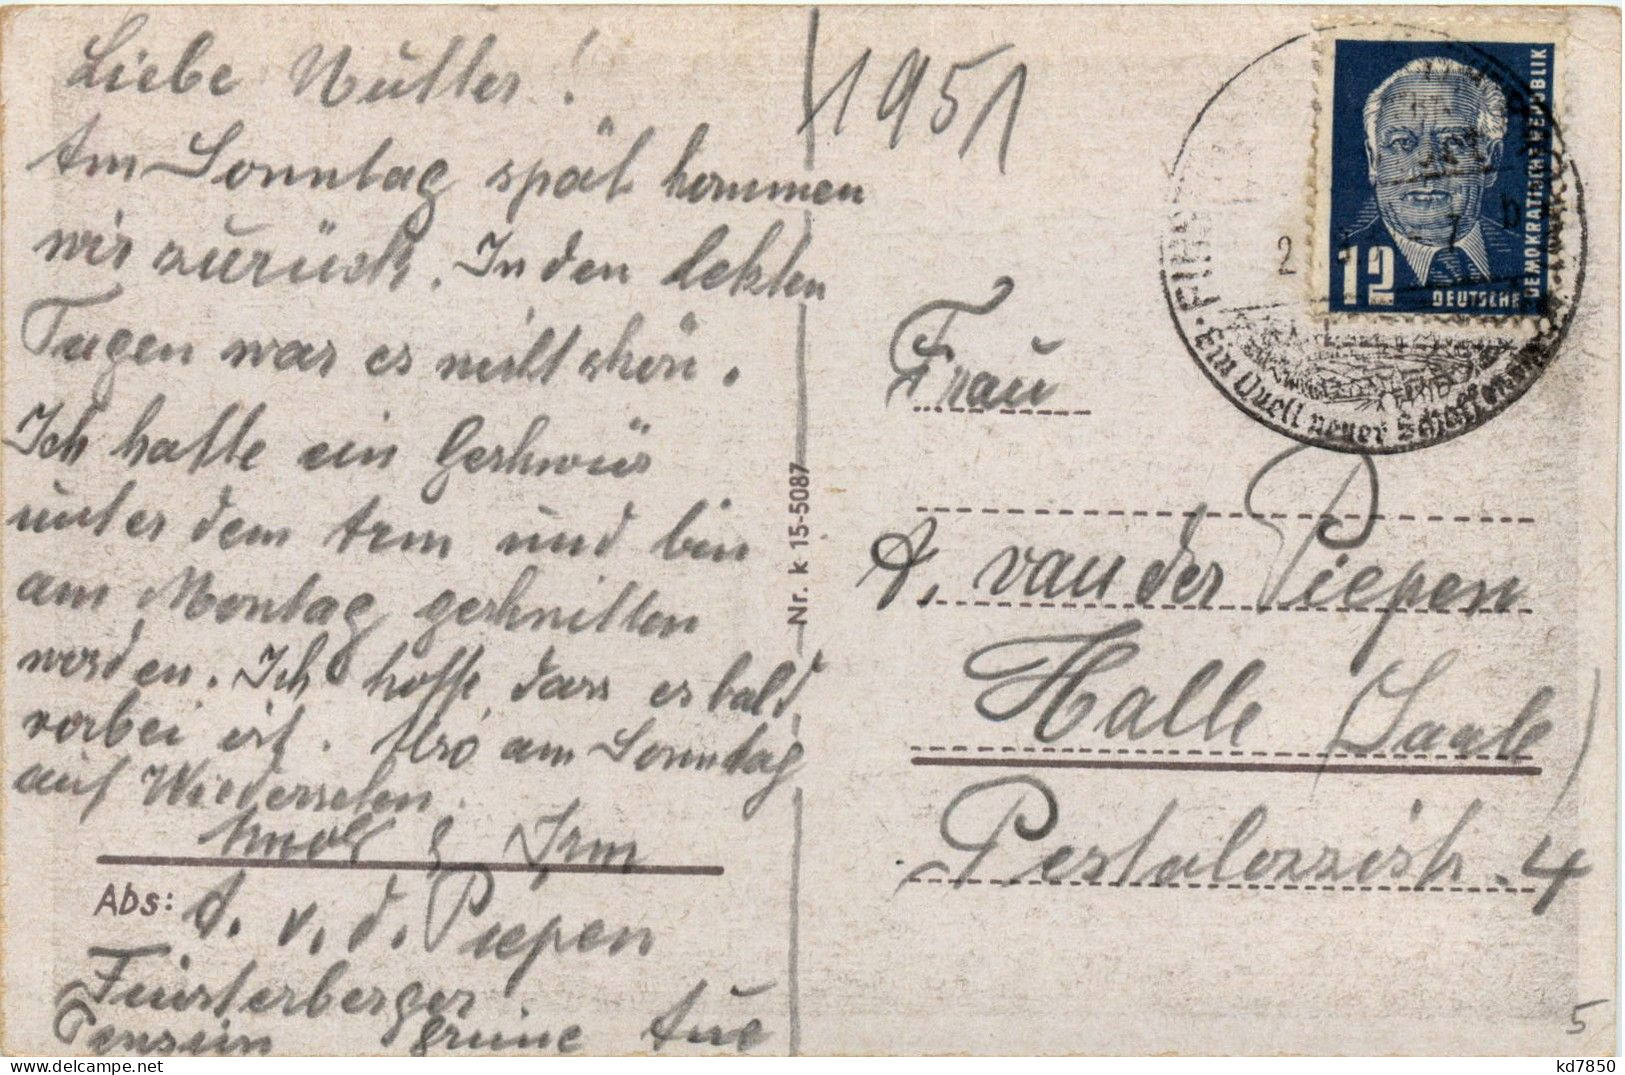 Liebe Mutter!
Am Sonntag spät kommen
wir zurück. In den letzten
Tagen war es nicht schön.
Ich hatte ein Geschwür
unter dem Arm und bin
am Montag geschnitten
worden. Ich hoffe, dass es bald
vorbei ist. Also am Sonntag
auf Wiedersehen.
& Irm
Abs: A. v. d. Piepen
Finsterberger
Pension Grüne Aue
Nr. k 15-5087
1951
12
DEUTSCHE
DEMOKRATISCHE REPUBLIK
Ein Quell neuer Schaffens
Frau
A. van der Piepen
Halle (Saale)
Pestalozzistr. 4
5
kd7850